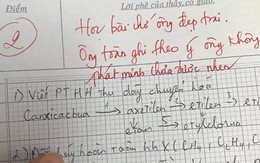 Điểm
Lời phê của thầy, cô giáo
2
Học bài chứ ông đẹp trai.
Ông toàn ghi theo ý ông không
phát minh chưa được nhen
1) Viết PTHH thu dãy chuyển hoá
Canxicacbua → axetilen → etilen →
etan → etylclorua
2) hoàn toàn hh X (CH4, C2H4,